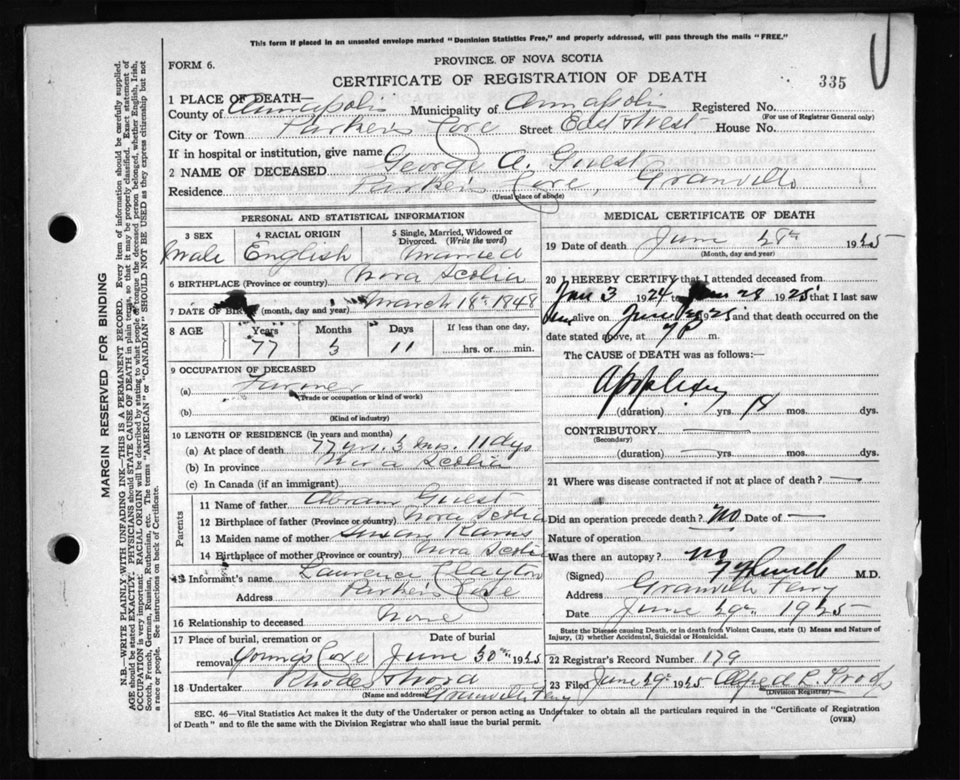 This form if placed in an unsealed envelope marked "Dominion Statistics Free," and properly addressed, will pass through the mails "FREE."
FORM 6.
PROVINCE OF NOVA SCOTIA
CERTIFICATE OF REGISTRATION OF DEATH
335
1 PLACE OF DEATH—
County of Annapolis Municipality of Annapolis Registered No.
(For use of Registrar General only)
City or Town Parker's Cove Street East & West House No.
If in hospital or institution, give name
2 NAME OF DECEASED George A. Guest
Residence Parker's Cove, Granville
(Usual place of abode)
PERSONAL AND STATISTICAL INFORMATION
3 SEX 4 RACIAL ORIGIN 5 Single, Married, Widowed or Divorced. (Write the word)
Male English Married
6 BIRTHPLACE (Province or country) Nova Scotia
7 DATE OF BIRTH (month, day and year) March 18th 1848
8 AGE Years Months Days If less than one day,
77 3 11 hrs. or min.
9 OCCUPATION OF DECEASED
(a) Farmer
(Trade or occupation or kind of work)
(b)
(Kind of industry)
10 LENGTH OF RESIDENCE (in years and months)
(a) At place of death 77 yrs. 3 mos. 11 dys
(b) In province Nova Scotia
(c) In Canada (if an immigrant)
Parents
11 Name of father Abram Guest
12 Birthplace of father (Province or country) Nova Scotia
13 Maiden name of mother Susan
14 Birthplace of mother (Province or country) Nova Scotia
15 Informant's name Laurence Clayton
Address Parker's Cove
16 Relationship to deceased None
17 Place of burial, cremation or Date of burial
removal Young's Cove June 30th 1925
18 Undertaker Rhode
(Name and address) Granville Ferry
MEDICAL CERTIFICATE OF DEATH
19 Date of death June 28th 1925
(Month, day and year)
20 I HEREBY CERTIFY that I attended deceased from
Jan 3 1924 to June 28 1925 that I last saw
him alive on June 1925 and that death occurred on the
date stated above, at 7 P m.
The CAUSE of DEATH was as follows:—
Apoplexy
(duration) yrs. mos. dys.
CONTRIBUTORY
(Secondary)
(duration) yrs. mos. dys.
21 Where was disease contracted if not at place of death? —
Did an operation precede death? No Date of —
Nature of operation —
Was there an autopsy? no
(Signed) M.D.
Address Granville Ferry
Date June 29th 1925
State the Disease causing Death, or in death from Violent Causes, state (1) Means and Nature of
Injury, (2) whether Accidental, Suicidal or Homicidal.
22 Registrar's Record Number 179
23 Filed June 29th 1925 Alfred R.
(Division Registrar)
SEC. 46—Vital Statistics Act makes it the duty of the Undertaker or person acting as Undertaker to obtain all the particulars required in the "Certificate of Registration
of Death" and to file the same with the Division Registrar who shall issue the burial permit.
(OVER)
MARGIN RESERVED FOR BINDING
N.B.—WRITE PLAINLY WITH UNFADING INK—THIS IS A PERMANENT RECORD. Every item of information should be carefully supplied.
AGE should be stated EXACTLY. PHYSICIANS should STATE CAUSE OF DEATH in plain terms, so that it may be properly classified. Exact statement of
OCCUPATION is very important. RACIAL ORIGIN will be described by stating to what people or tongue the deceased person belonged, whether English, Irish,
Scotch, French, German, Russian, Ruthenian, etc. The terms "AMERICAN" or "CANADIAN" SHOULD NOT BE USED as they express citizenship but not
a race or people. See instructions on back of Certificate.